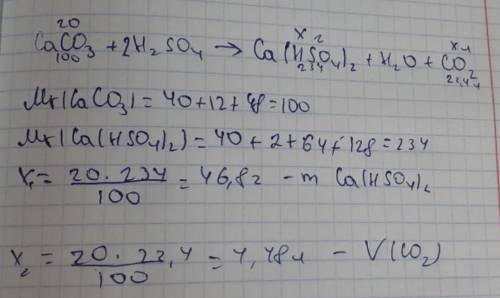 20 x 2 x 1
CaCO3 + 2H2SO4 → Ca(HSO4)2 + H2O + CO2
100 234 22,4
Mr(CaCO3) = 40+12+48=100
Mr(Ca(HSO4)2) = 40+2+64+128=234
x1 = 20·234/100 = 46,8г - m Ca(HSO4)2
x2 = 20·22,4/100 = 4,48л - V(CO2)